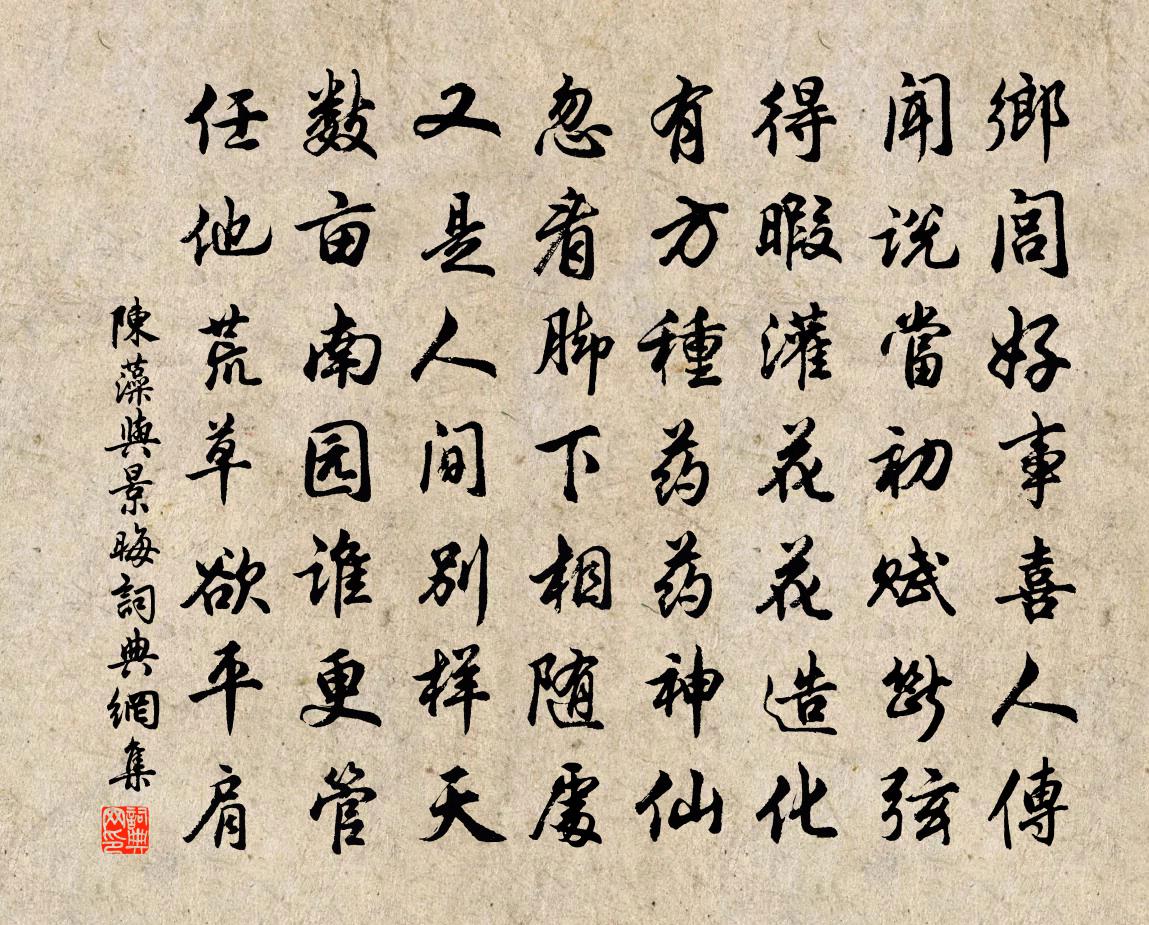 鄉閭好事喜人傳
闻説當初赋斷弦
得暇灌花花造化
有方種药药神仙
忽看脚下相随處
又是人间别样天
数亩南园谁更管
任他荒草欲平肩
陳藻與景晦詞典網集
詞典网印